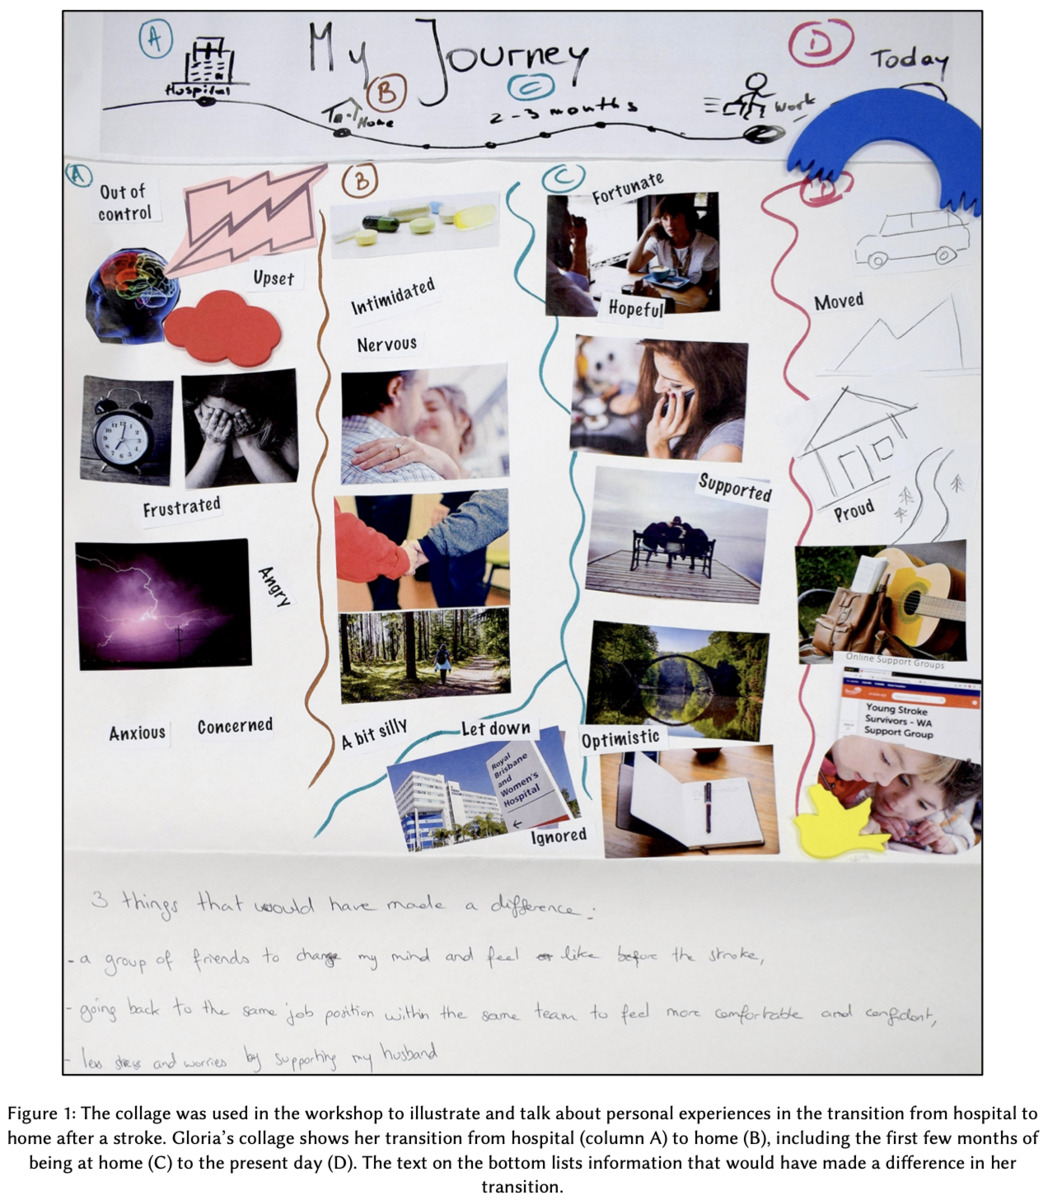 A
My Journey
D
Today
Hospital
B
Home
C
2-3 months
work
A
Out of
control
Upset
Frustrated
Angry
Anxious
Concerned
B
Intimidated
Nervous
A bit silly
Let down
Royal
Brisbane
and
Women's
Hospital
Ignored
C
Fortunate
Hopeful
Supported
Optimistic
D
Moved
Proud
Online Support Groups
Young Stroke
Survivors - WA
Support Group
3 things that would have made a difference:
- a group of friends to change my mind and feel like before the stroke,
- going back to the same job position within the same team to feel more comfortable and confident,
- less stress and worries by supporting my husband
Figure 1: The collage was used in the workshop to illustrate and talk about personal experiences in the transition from hospital to
home after a stroke. Gloria's collage shows her transition from hospital (column A) to home (B), including the first few months of
being at home (C) to the present day (D). The text on the bottom lists information that would have made a difference in her
transition.